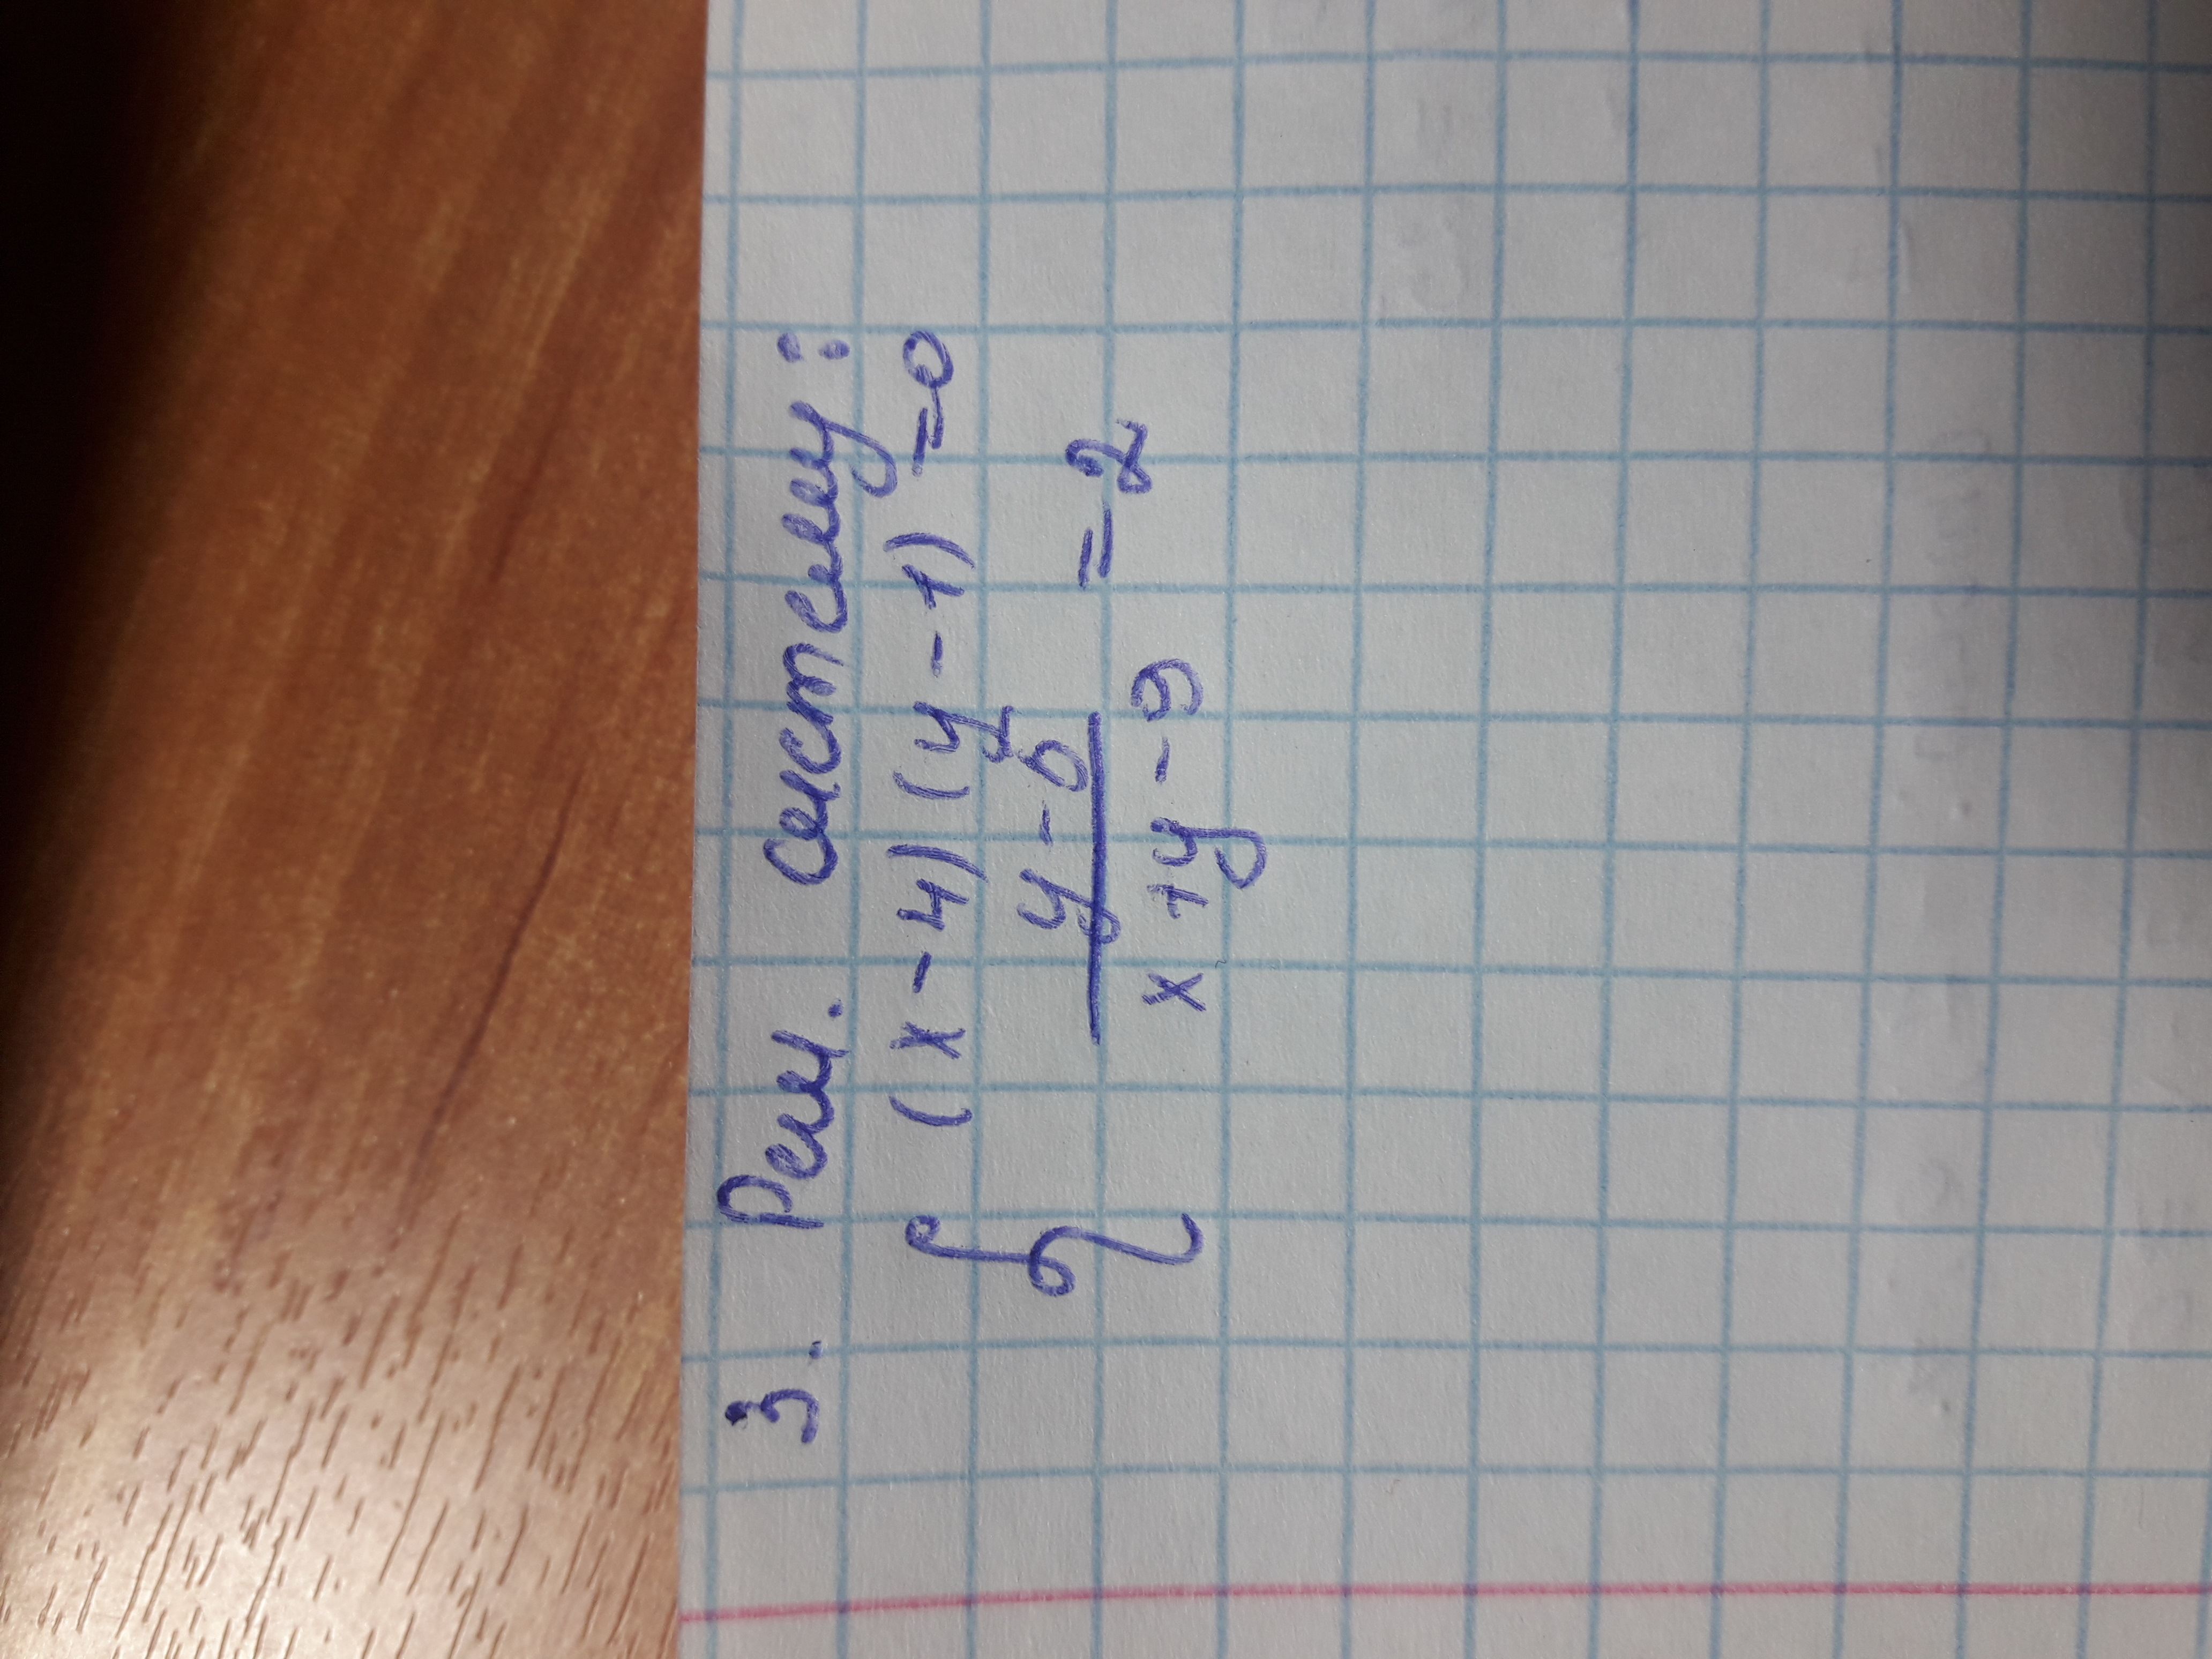 3. Реш. систему:
(x-4)(y-1)=0
y-6
x+y-9
=2